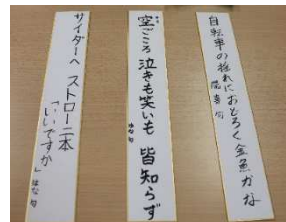 自転車の揺れにおどろく金魚かな
空ごころ 泣きも笑いも 皆知らず
はな句
サイダーへ ストロー二本
「いいですか」はな句